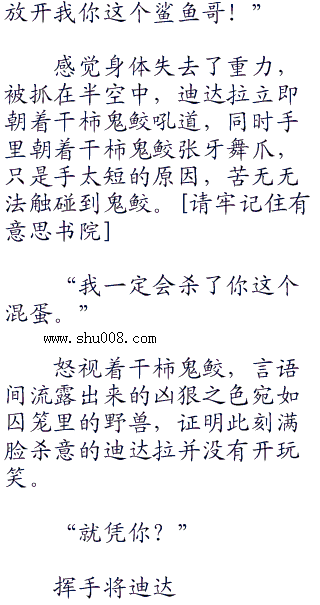 放开我你这个鲨鱼哥！”
感觉身体失去了重力，
被抓在半空中，迪达拉立即
朝着干柿鬼鲛吼道，同时手
里朝着干柿鬼鲛张牙舞爪，
只是手太短的原因，苦无无
法触碰到鬼鲛。[请牢记住有
意思书院]
“我一定会杀了你这个
混蛋。”
www.shu008.com
怒视着干柿鬼鲛，言语
间流露出来的凶狠之色宛如
囚笼里的野兽，证明此刻满
脸杀意的迪达拉并没有开玩
笑。
“就凭你？”
挥手将迪达